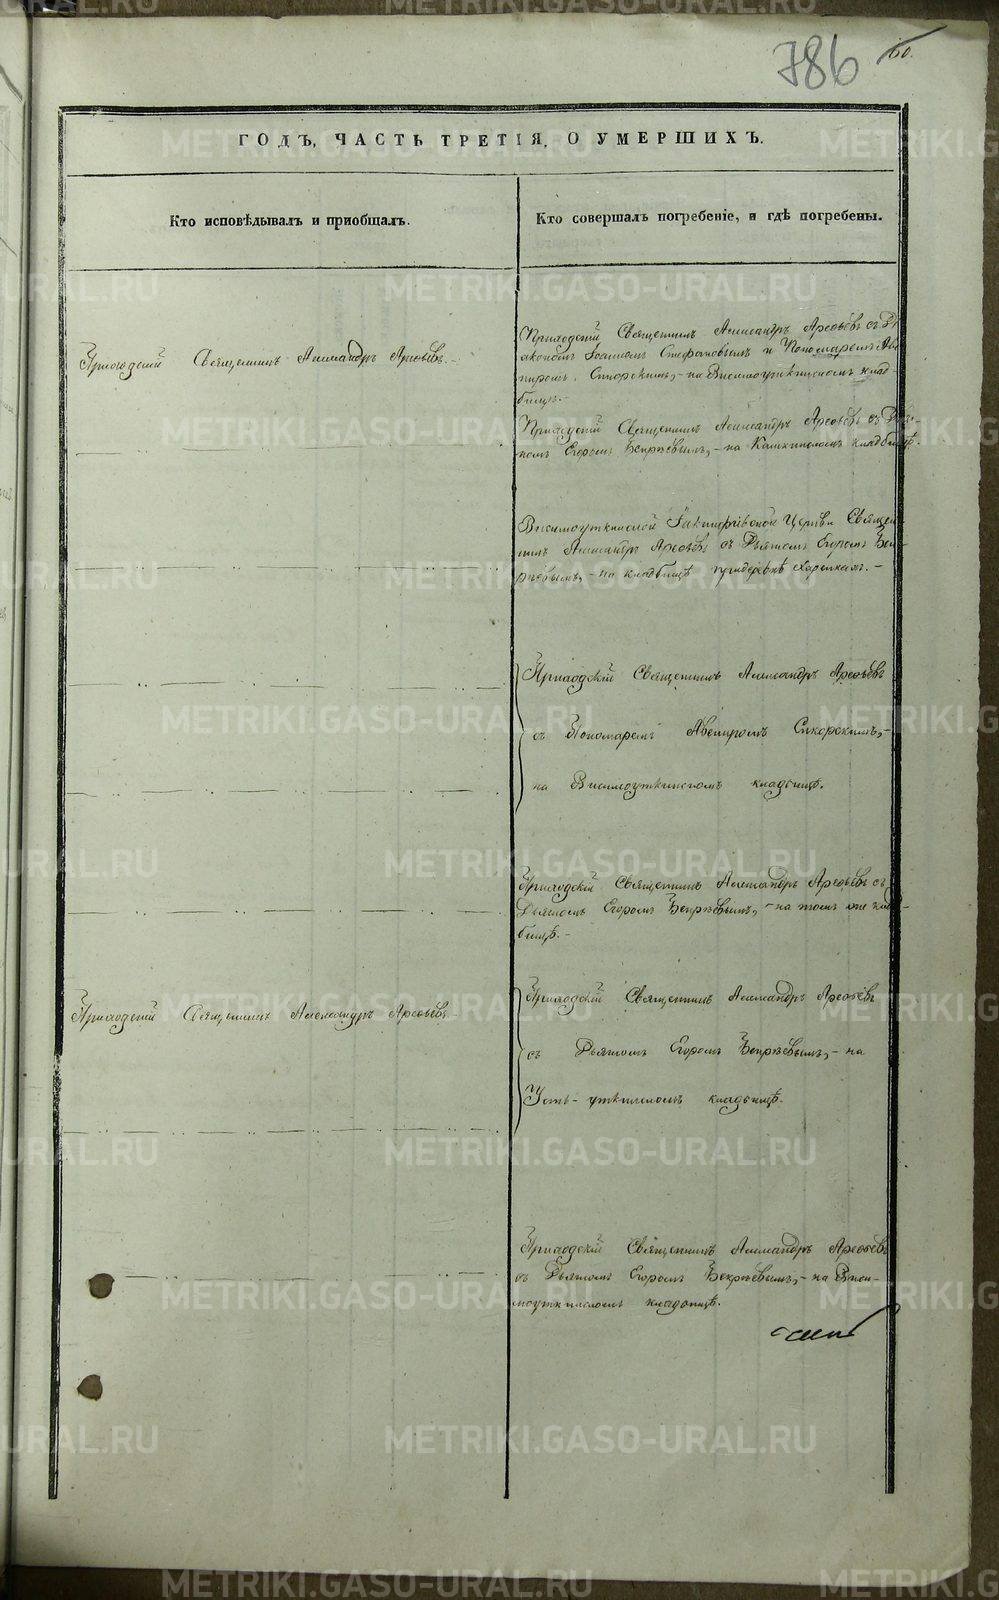 786
60.
ГОДЪ, ЧАСТЬ ТРЕТІЯ, О УМЕРШИХЪ.
Кто исповѣдывалъ и приобщалъ.
Кто совершалъ погребеніе, и гдѣ погребены.
Приходскій Священникъ Александръ Арефьевъ.
Приходскій Священникъ Александръ Арефьевъ съ Ді-
акономъ Іоанномъ Стефановымъ и Пономаремъ Аве-
ниромъ Сикорскимъ, - на Висимоуткинскомъ клад-
бищѣ.
Приходскій Священникъ Александръ Арефьевъ съ Дьяч-
комъ Егоромъ - на кладбищѣ.
Висимоуткинской Церкви Священ-
никъ Александръ Арефьевъ съ Дьячкомъ Егоромъ
- на кладбищѣ при деревнѣ Харенкахъ. -
Приходскій Священникъ Александръ Арефьевъ
съ Пономаремъ Авениромъ Сикорскимъ, -
на Висимоуткинскомъ кладбищѣ.
Приходскій Священникъ Александръ Арефьевъ съ
Дьячкомъ Егоромъ - на томъ же клад-
бищѣ. -
Приходскій Священникъ Александръ Арефьевъ
Приходскій Священникъ Александръ Арефьевъ
съ Дьячкомъ Егоромъ - на
Усть-уткинскомъ кладбищѣ.
Приходскій Священникъ Александръ Арефьевъ
съ Дьячкомъ Егоромъ - на Виси-
моуткинскомъ кладбищѣ.
METRIKI.GASO-URAL.RU